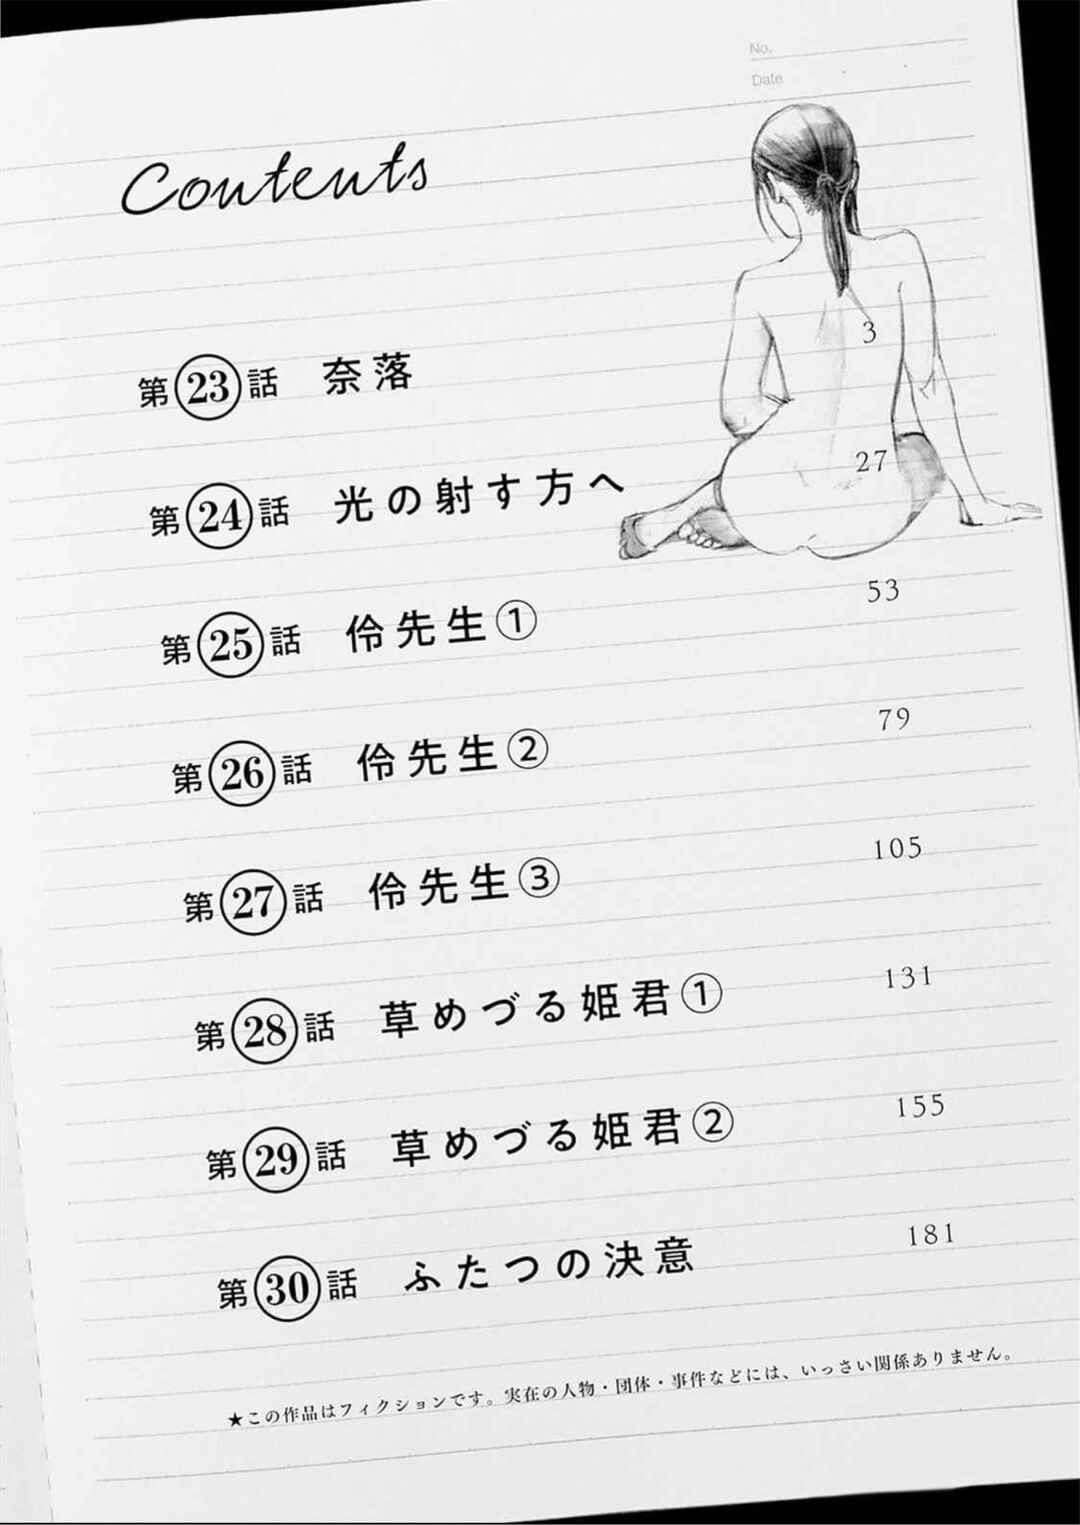 No.
Date
Contents
第23話 奈落 3
第24話 光の射す方へ 27
第25話 伶先生① 53
第26話 伶先生② 79
第27話 伶先生③ 105
第28話 草めづる姫君① 131
第29話 草めづる姫君② 155
第30話 ふたつの決意 181
★この作品はフィクションです。実在の人物・団体・事件などには、いっさい関係ありません。